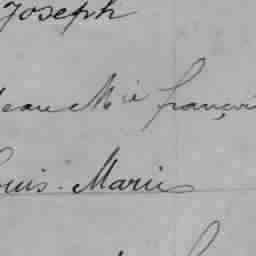 Joseph
Jean Mie françois
Louis-Marie